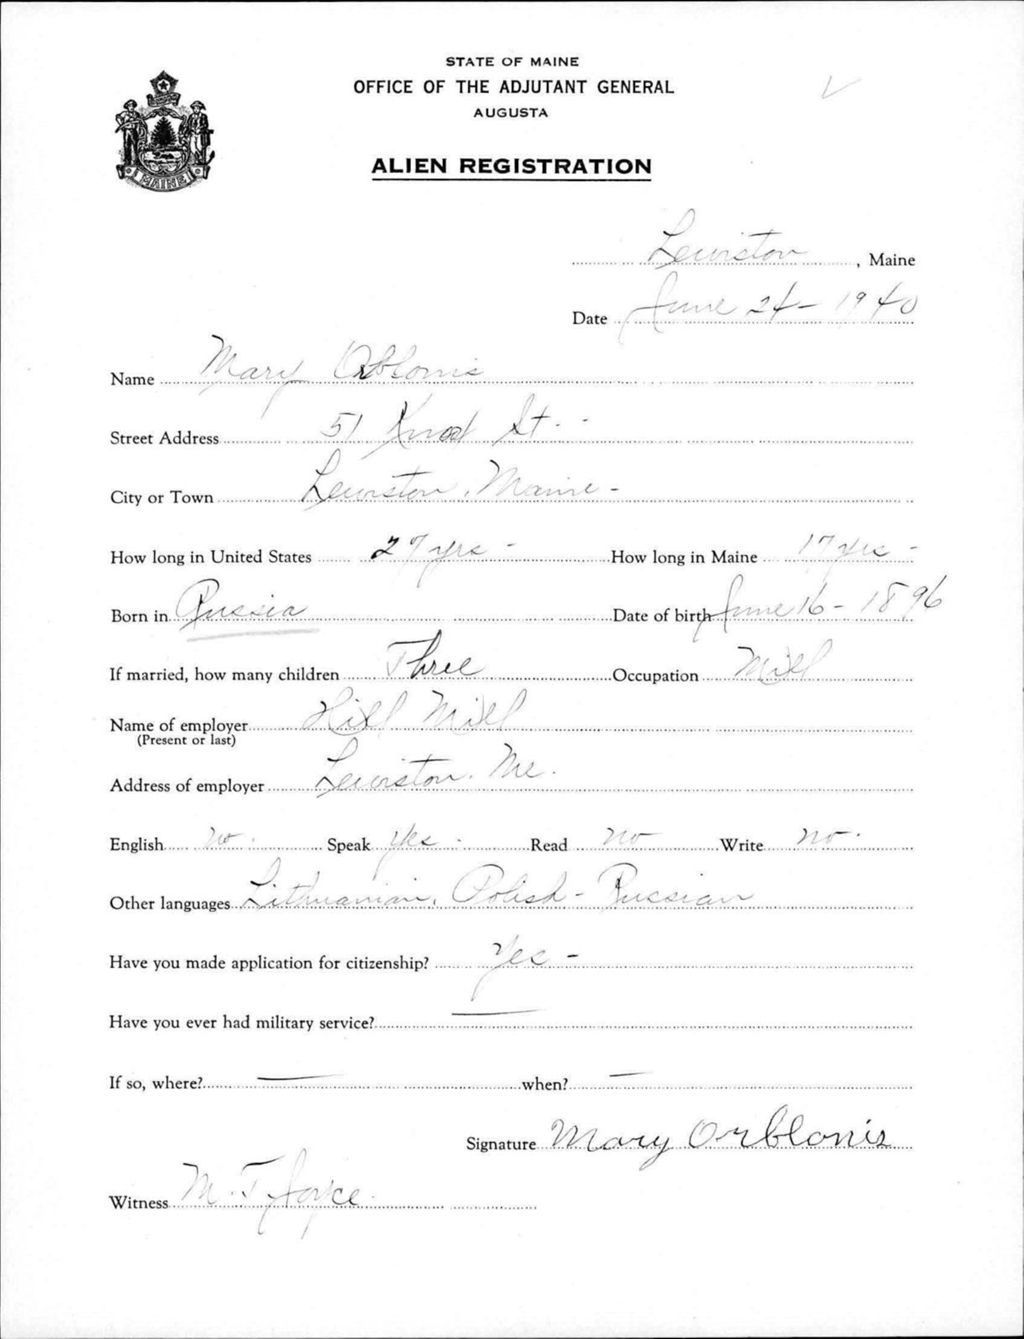 STATE OF MAINE
OFFICE OF THE ADJUTANT GENERAL
AUGUSTA
ALIEN REGISTRATION
MAINE
Lewiston, Maine
Date June 24 - 1940
Name Mary Orblonis
Street Address 51 Knox St.
City or Town Lewiston, Maine -
How long in United States 27 yrs - How long in Maine 17 yrs -
Born in Russia Date of birth June 16 - 1896
If married, how many children Three Occupation Mill
Name of employer Hill Mill
(Present or last)
Address of employer Lewiston. Me.
English no. Speak Yes. Read no Write no.
Other languages Lithuanian, Polish - Russian
Have you made application for citizenship? Yes -
Have you ever had military service? —
If so, where? — when? —
Signature Mary Orblonis
Witness M. T. Joyce